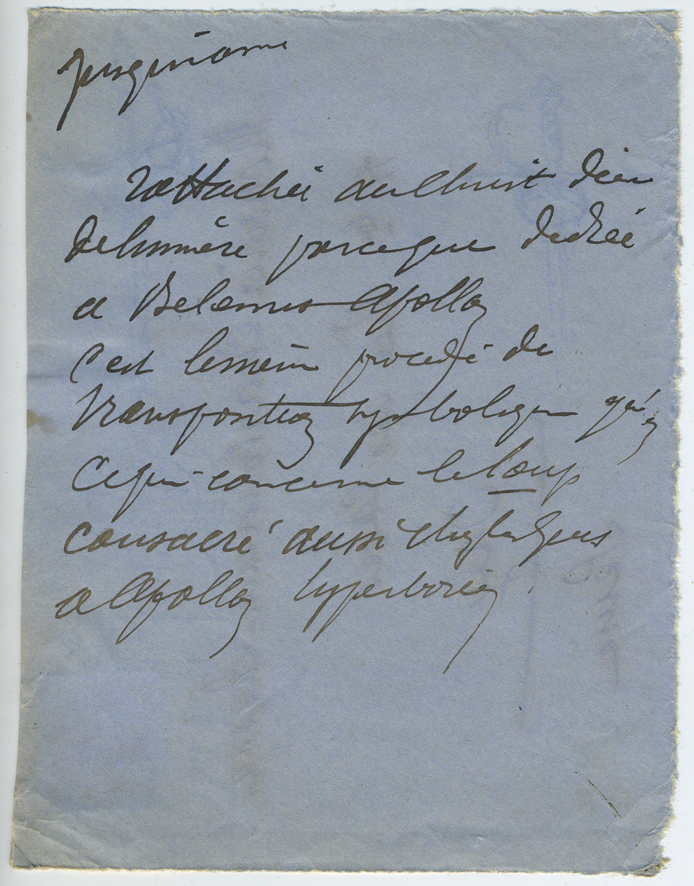 jusquiame
rattachée au Christ dieu
de lumière parceque dediée
a Belenus Apollon
c'est le même procédé de
transposition symbolique qu'en
ce qui concerne le loup
consacré aussi chez les grecs
a Apollon hyperboréen